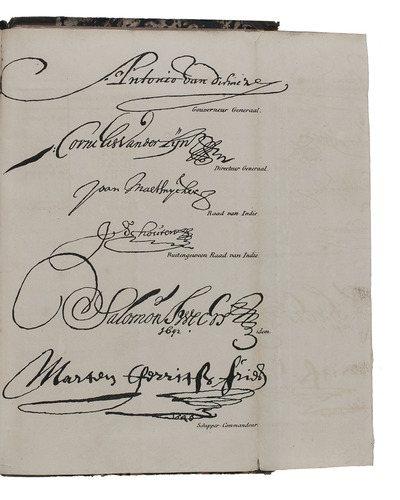 Antonio van Diemen
Gouverneur Generaal.
Cornelis vander Lijn
Directeur Generaal.
Joan Maetsuycker
Raad van Indie.
J Schouten
Buitengewoon Raad van Indie
Salomon Sweers
idem
Marten Gerritß
Schipper Commandeur.